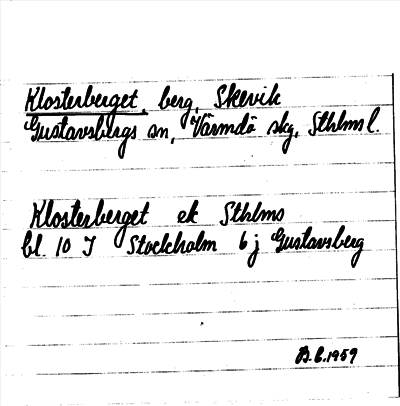 Klosterberget, berg, Skevik
Gustavsbergs sn, Värmdö skg, Sthlms l.
Klosterberget ek Sthlms
bl. 10 I Stockholm 6 j Gustavsberg
B.E. 1959